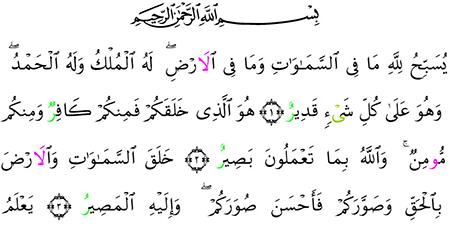 بِسْمِ اللَّهِ الرَّحْمَٰنِ الرَّحِيمِ
يُسَبِّحُ لِلَّهِ مَا فِى اَ۬لسَّمَٰوَٰتِ وَمَا فِى اِ۬لَارْضِۖ لَهُ اُ۬لْمُلْكُ وَلَهُ اُ۬لْحَمْدُۖ
وَهُوَ عَلَىٰ كُلِّ شَىْءٖ قَدِيرٌ ﴿١﴾ هُوَ اَ۬لَّذِى خَلَقَكُمْ فَمِنكُمْ كَافِرٌ وَمِنكُم
مُّومِنٌۚ وَاللَّهُ بِمَا تَعْمَلُونَ بَصِيرٌ ﴿٢﴾ خَلَقَ اَ۬لسَّمَٰوَٰتِ وَالَارْضَ
بِالْحَقِّ وَصَوَّرَكُمْ فَأَحْسَنَ صُوَرَكُمْۖ وَإِلَيْهِ اِ۬لْمَصِيرُ ﴿٣﴾ يَعْلَمُ